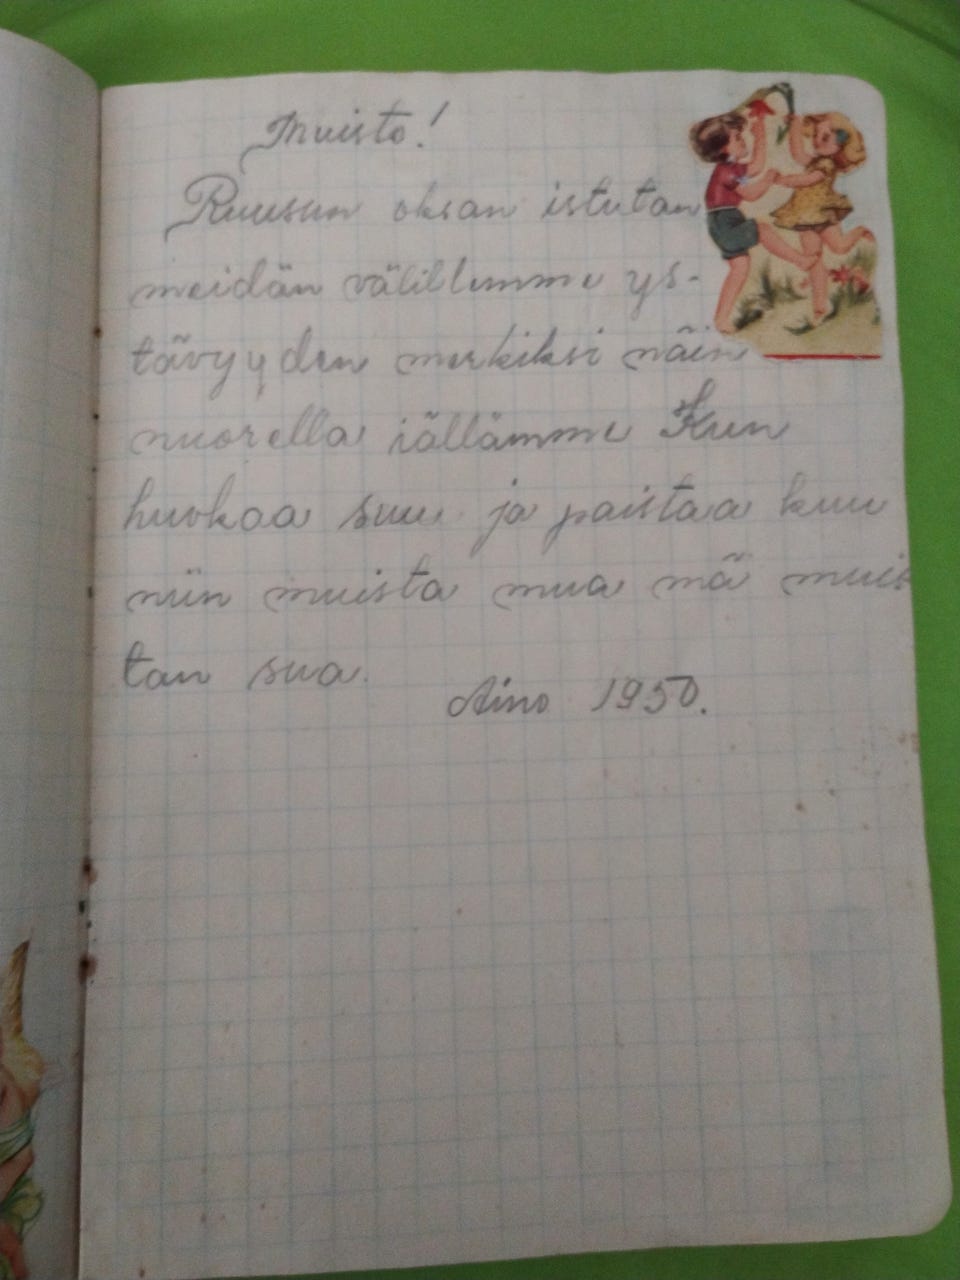 Muisto!
Ruusun oksan istutan
meidän välillemme ys-
tävyyden merkiksi näin
nuorella iällämme Kun
huokaa suu ja paistaa kuu
niin muista mua mä muis
tan sua.
Aino 1950.